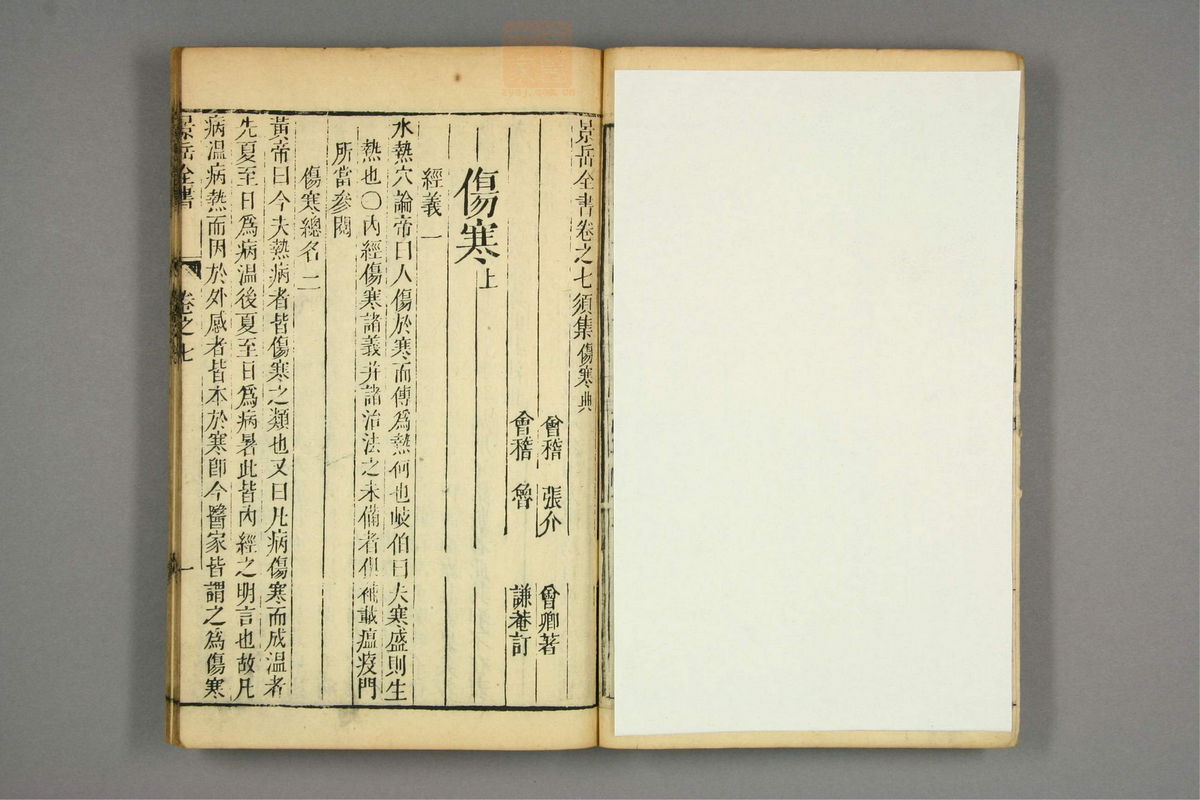 景岳全書卷之七須集傷寒典
會稽 張介 會卿著
會稽 魯 謙菴訂
傷寒上
經義一
水熱穴論帝曰人傷於寒而傳爲熱何也岐伯曰夫寒盛則生
熱也〇內經傷寒諸義并諸治法之未備者俱補載瘟疫門
所當參閱
傷寒總名二
黃帝曰今夫熱病者皆傷寒之類也又曰凡病傷寒而成温者
先夏至日爲病温後夏至日爲病暑此皆內經之明言也故凡
病温病熱而因於外感者皆本於寒卽今醫家皆謂之爲傷寒
景岳全書 卷之七 一